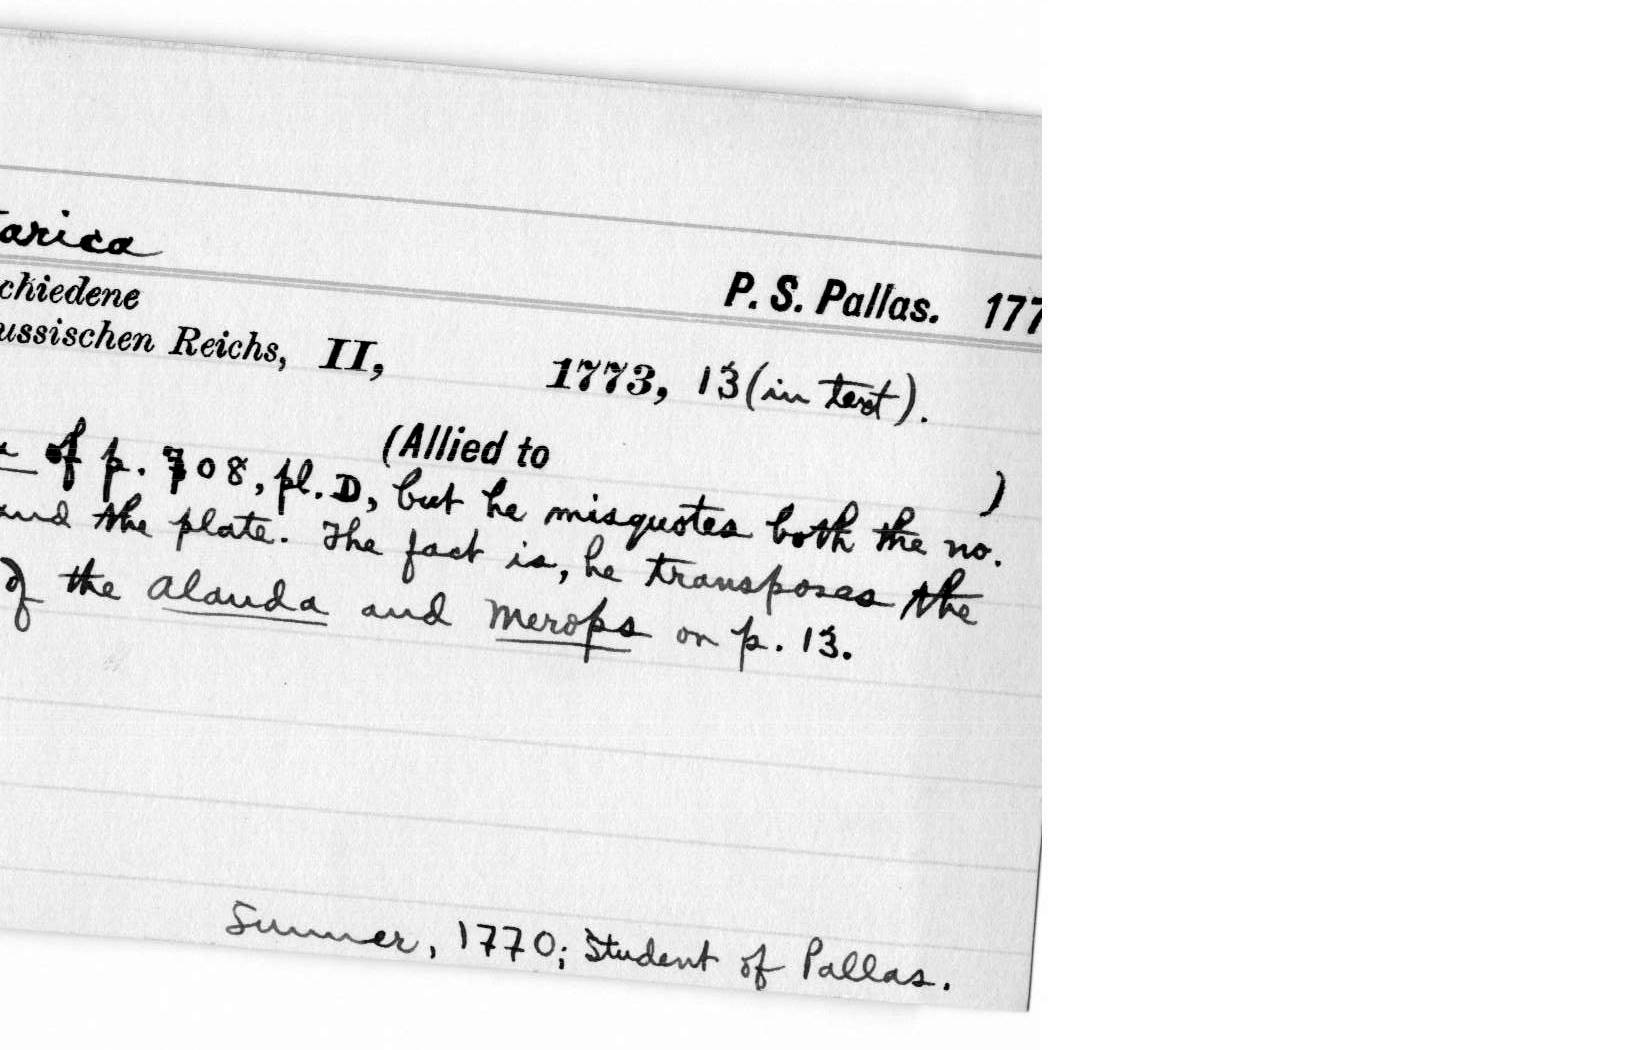 tarica
P. S. Pallas. 177
chiedene
ussischen Reichs, II, 1773, 13 (in text).
(Allied to )
of p. 708, pl. D, but he misquotes both the no.
and the plate. The fact is, he transposes the
of the Alauda and Merops on p. 13.
Summer, 1770; Student of Pallas.